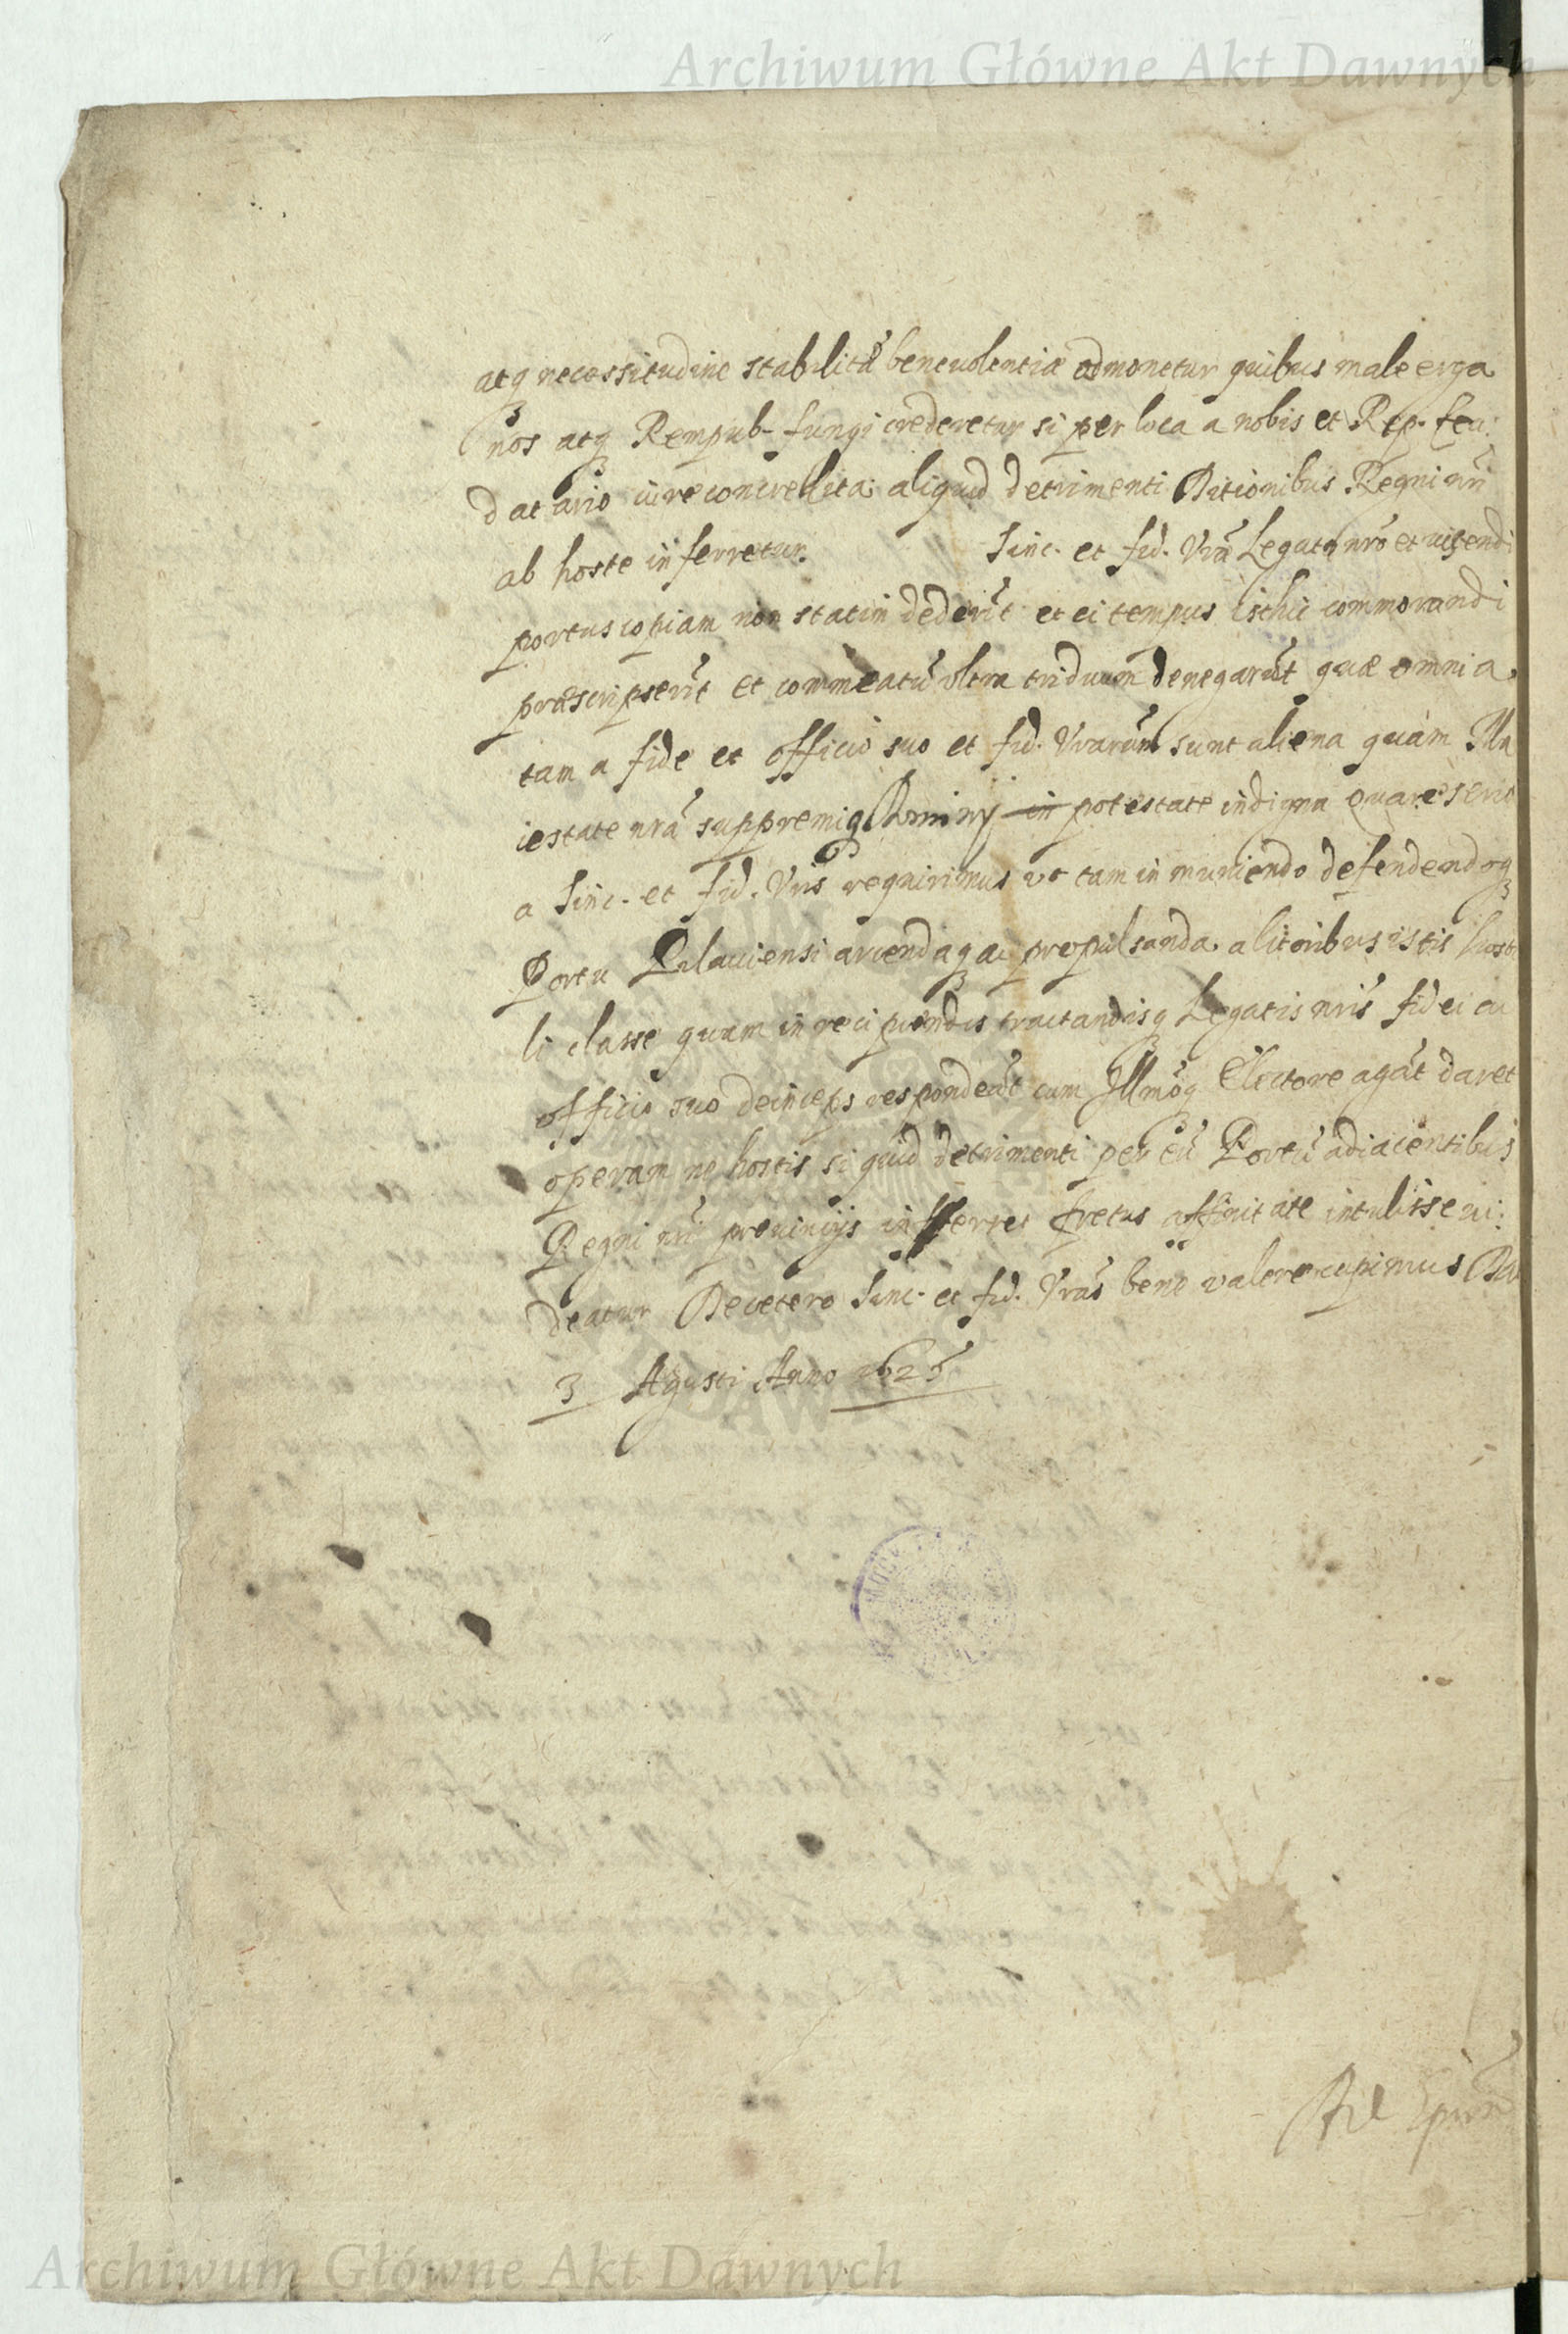 Archiwum Główne Akt Dawnych
atq necessitudine stabilitā beneuolentiæ admonetur quibus male erga
nos atq Rempub. fungi crederetur si per loca a nobis et Rep. feu:
datario iure concredita aliquid detrimenti Ditionibus Regni nri
ab hoste inferretur. Sinc. et fid. Vrae Legato nro et uisendi
portus copiam non statim dederūt et ei tempus isthic commorandi
præscripserūt et commeatū vltra triduum denegarūt quæ omnia
tam a fide et officio suo et fid. Vrarum sunt aliena quàm Ma
iestate nrā suppremiq Dominy in potestate indigna Quare serio
a Sinc. et fid. Vris requirimus vt tam in muniendo defendendoq
Portu Pilauiensi arcendaq ac propulsanda a litoribus istis hosti
li classe quam in recipiendis tractandisq Legatis nris fidei ac
officio suo deinceps respondeāt cum Illmoq Electore agāt daret
operam ne hostis si quid detrimenti per eū Portū adiacentibus
Regni nri prouincijs inferret fretus affinitate intulisse ui:
deatur Decetero Sinc. et fid. Vras bene valere cupimus Da
3 Agusti Anno 1625
Ad
Archiwum Główne Akt Dawnych